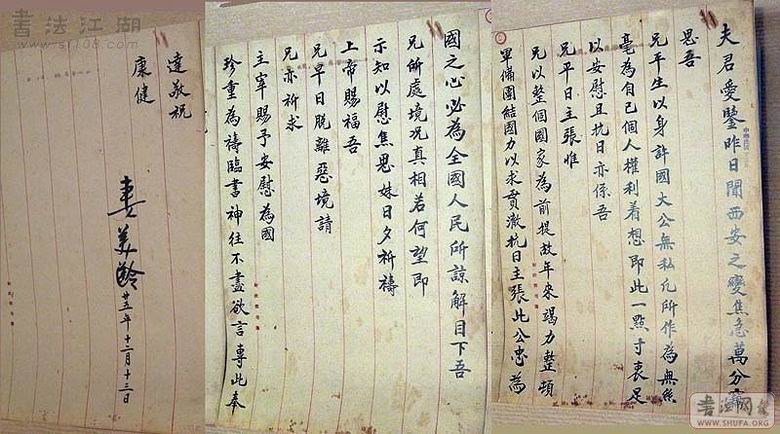 夫君愛鑒昨日聞西安之變焦急萬分竊
思吾
兄平生以身許國大公無私凡所作為無絲
毫為自己個人權利着想即此一點寸衷足
以安慰且抗日亦係吾
兄平日主張惟
兄以整個國家為前提故年來竭力整頓
軍備團結國力以求貫澈抗日主張此公忠為
國之心必為全國人民所諒解目下吾
兄所處境況真相若何望即
示知以慰焦思妹日夕祈禱
上帝賜福吾
兄早日脫離惡境請
兄亦祈求
主宰賜予安慰為國
珍重為禱臨書神往不盡欲言專此奉
達敬祝
康健
妻美齡
廿五年十二月十三日
書法江湖
WWW.SHUFA.ORG